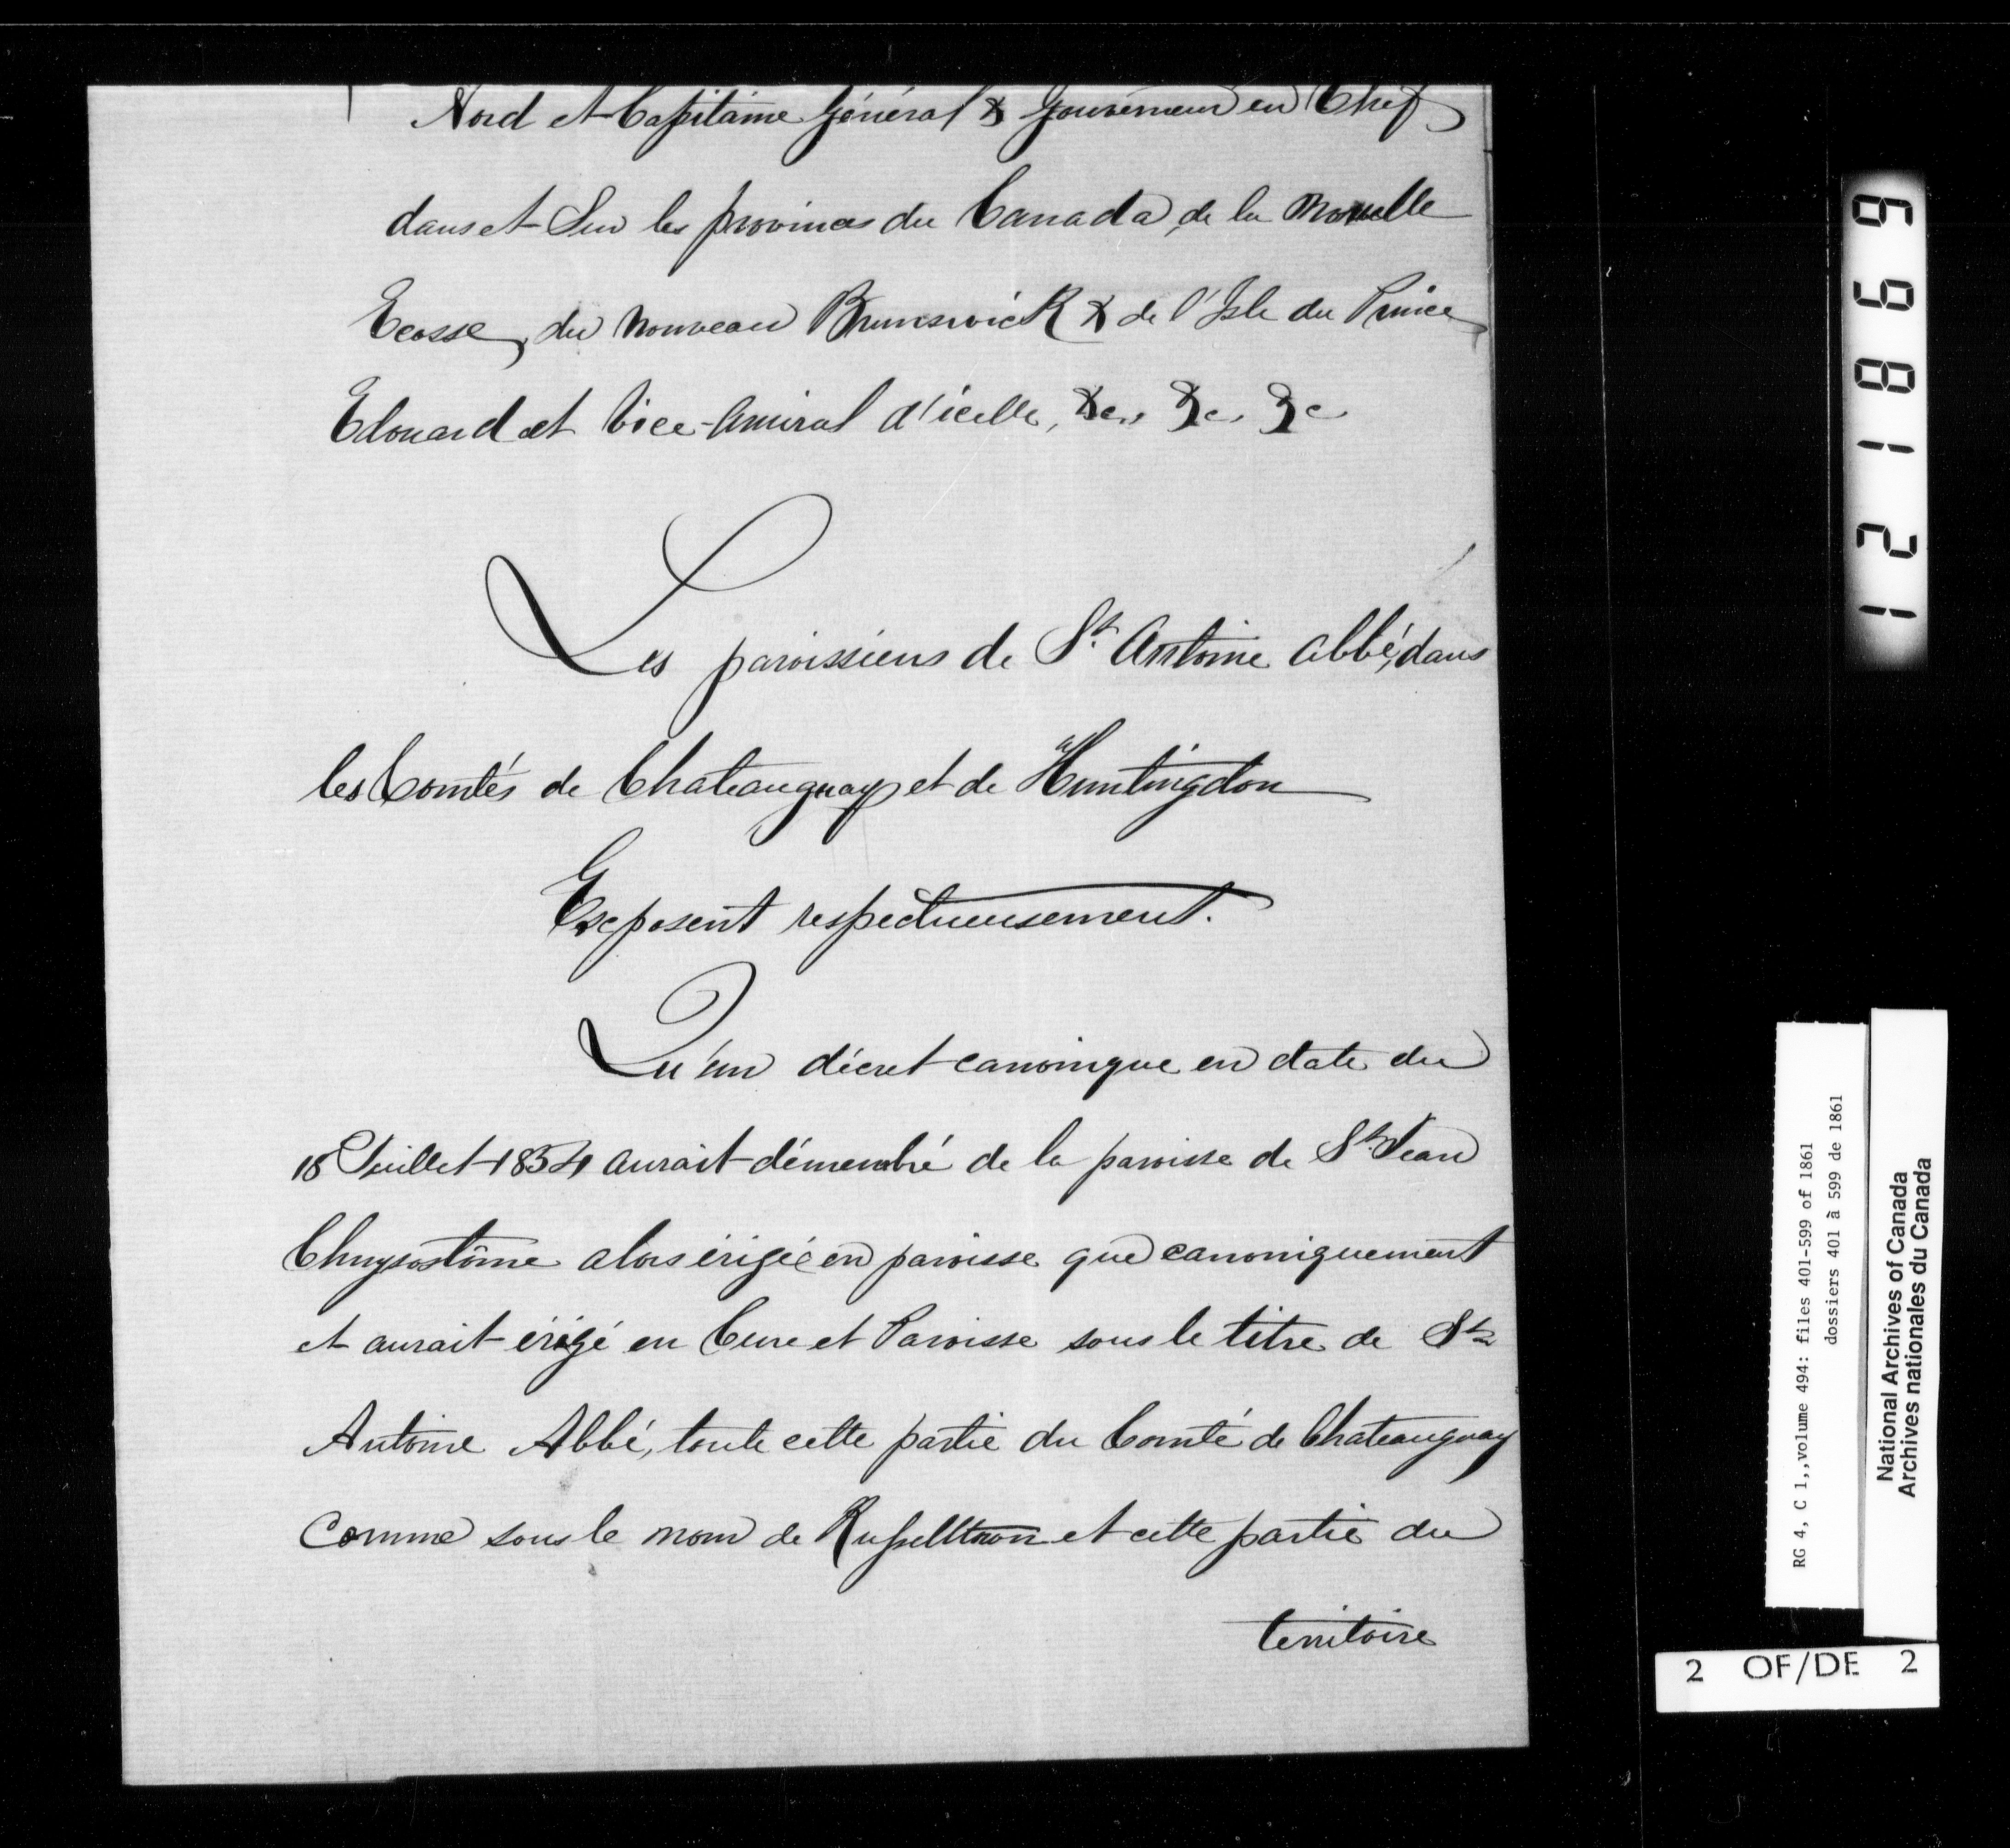 Nord et Capitaine Général & Gouverneur en Chef
dans et Sur les provinces du Canada, de la Nouvelle
Ecosse, du Nouveau Brunswick & de l'Isle du Prince
Edouard et Vice-Amiral d'icelle, &c, &c, &c
Les paroissiens de St. Antoine Abbé, dans
les Comtés de Chateauguay et de Huntingdon
Exposent respectueusement.
Qu'un décret canonique en date du
18 Juillet 1854 aurait démembré de la paroisse de St. Jean
Chrysostôme alors érigée en paroisse que canoniquement
et aurait érigé en Cure et Paroisse sous le titre de St
Antoine Abbé, toute cette partie du Comté de Chateauguay
Comme sous le nom de Russelltown et cette partie du
territoire
121869
RG 4, C 1,,volume 494: files 401-599 of 1861
dossiers 401 à 599 de 1861
National Archives of Canada
Archives nationales du Canada
2 OF/DE 2